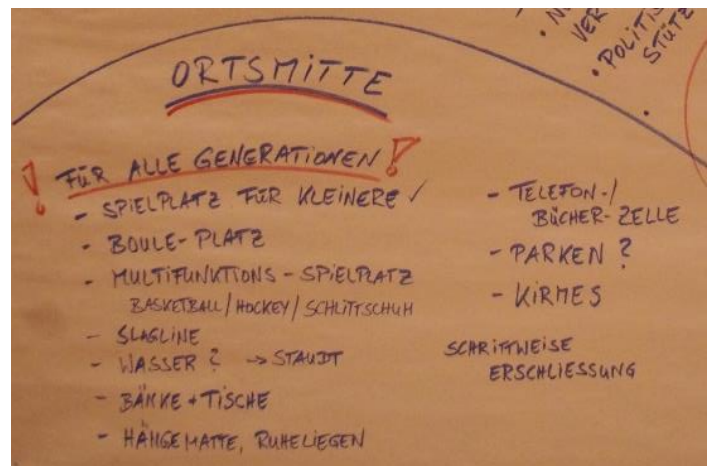 ORTSMITTE
! FÜR ALLE GENERATIONEN !
- SPIELPLATZ FÜR KLEINERE ✓
- BOULE-PLATZ
- MULTIFUNKTIONS-SPIELPLATZ
BASKETBALL/HOCKEY/SCHLITTSCHUH
- SLAGLINE
- WASSER? → STAUDT
- BÄNKE + TISCHE
- HÄNGEMATTE, RUHELIEGEN
- TELEFON-/
BÜCHER-ZELLE
- PARKEN?
- KIRMES
SCHRITTWEISE
ERSCHLIESSUNG
VER
• POLITIS
STÜTZ